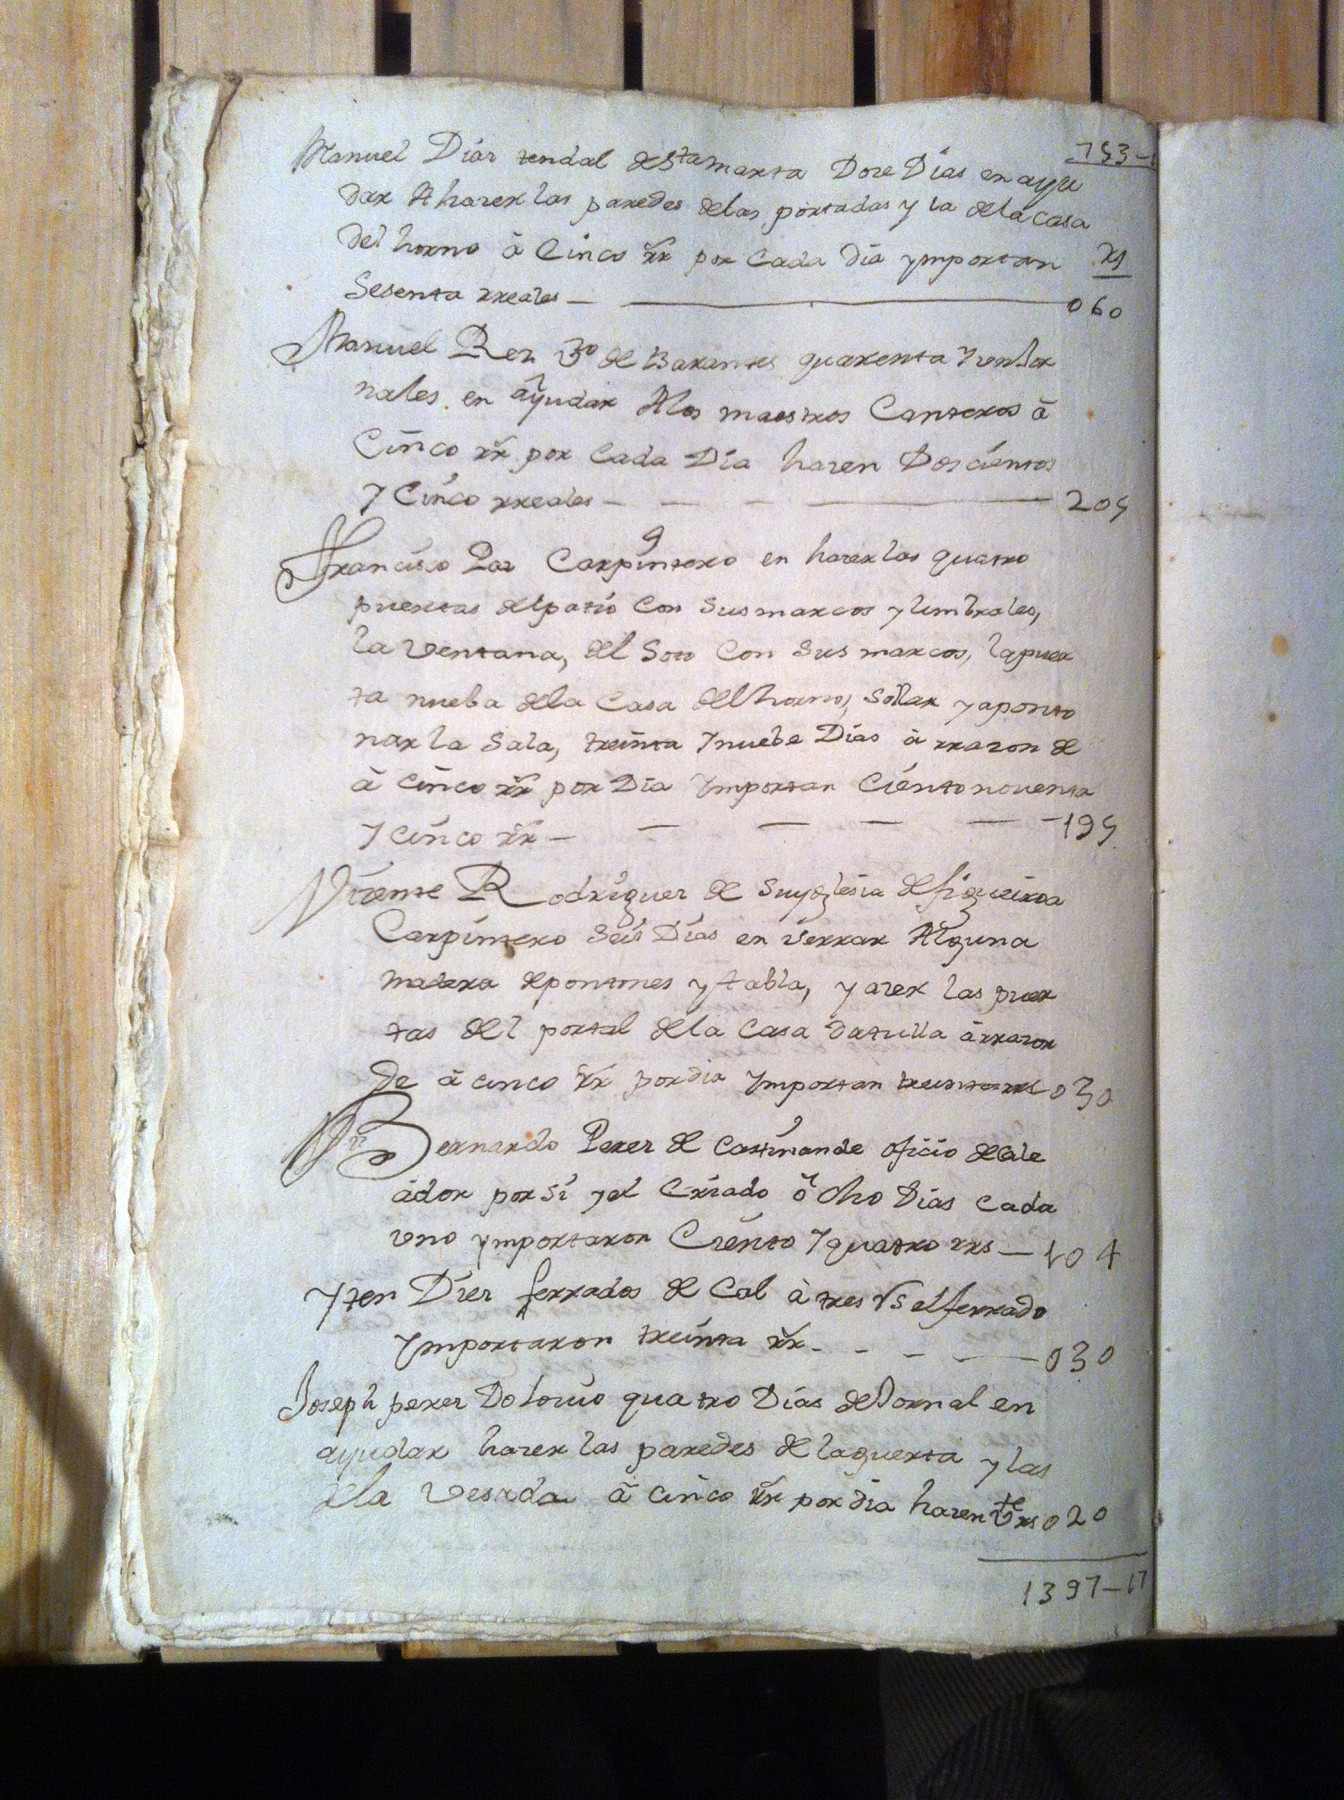 753-
Manuel Diaz tendal de Sta marta Doze Dias en ayu
dar A hazer las paredes delas portadas y la dela casa
del horno à Cinco rr por cada dia ymportan rs
Sesenta rreales — 060
Manuel Rez Vo de Barantes quarenta y un Jor
nales en ayudar Alos maestros Canteros à
Cinco rr por cada Dia hazen Doscientos
y Cinco rreales — 205
Francisco Paz Carpintero en hazer las quatro
puertas del patio con sus marcos y lumbrales,
la Ventana, del Soto con sus marcos, la puer
ta nueba dela Casa del horno, Sollar y aponto
nar la Sala, treinta y nuebe Dias à rrazon de
à cinco rr por Dia ymportan Ciento noventa
y cinco rr — 195
Vizente Rodriguez de Suyglesia de figueiroa
Carpintero Seis Dias en serrar Alguna
madera de pontones y tabla, y azer las puer
tas del portal dela Casa Datulla à rrazon
de à cinco rr por dia ymportan treinta rrs 030
Bernardo Perez de Castinande oficio de Cale
ador por Si y el Criado ocho Dias cada
uno ymportaron Ciento y quatro rrs — 104
Yten Diez ferrados de Cal à tres rs el ferrado
ymportaron treinta rr — 030
Joseph perez Do quatro Dias de Jornal en
ayudar hazer las paredes de la guerta y las
dela Vesada à cinco rr por dia hazen Vte rrs 020
1397-17